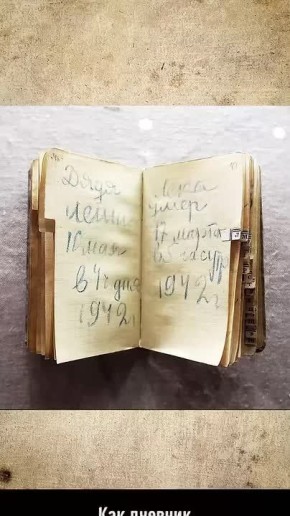 Дядя
Леша
10 мая
в 4ч дня
1942г
Лека
умер
17 марта
в 5 часутр
1942г
Как дневник